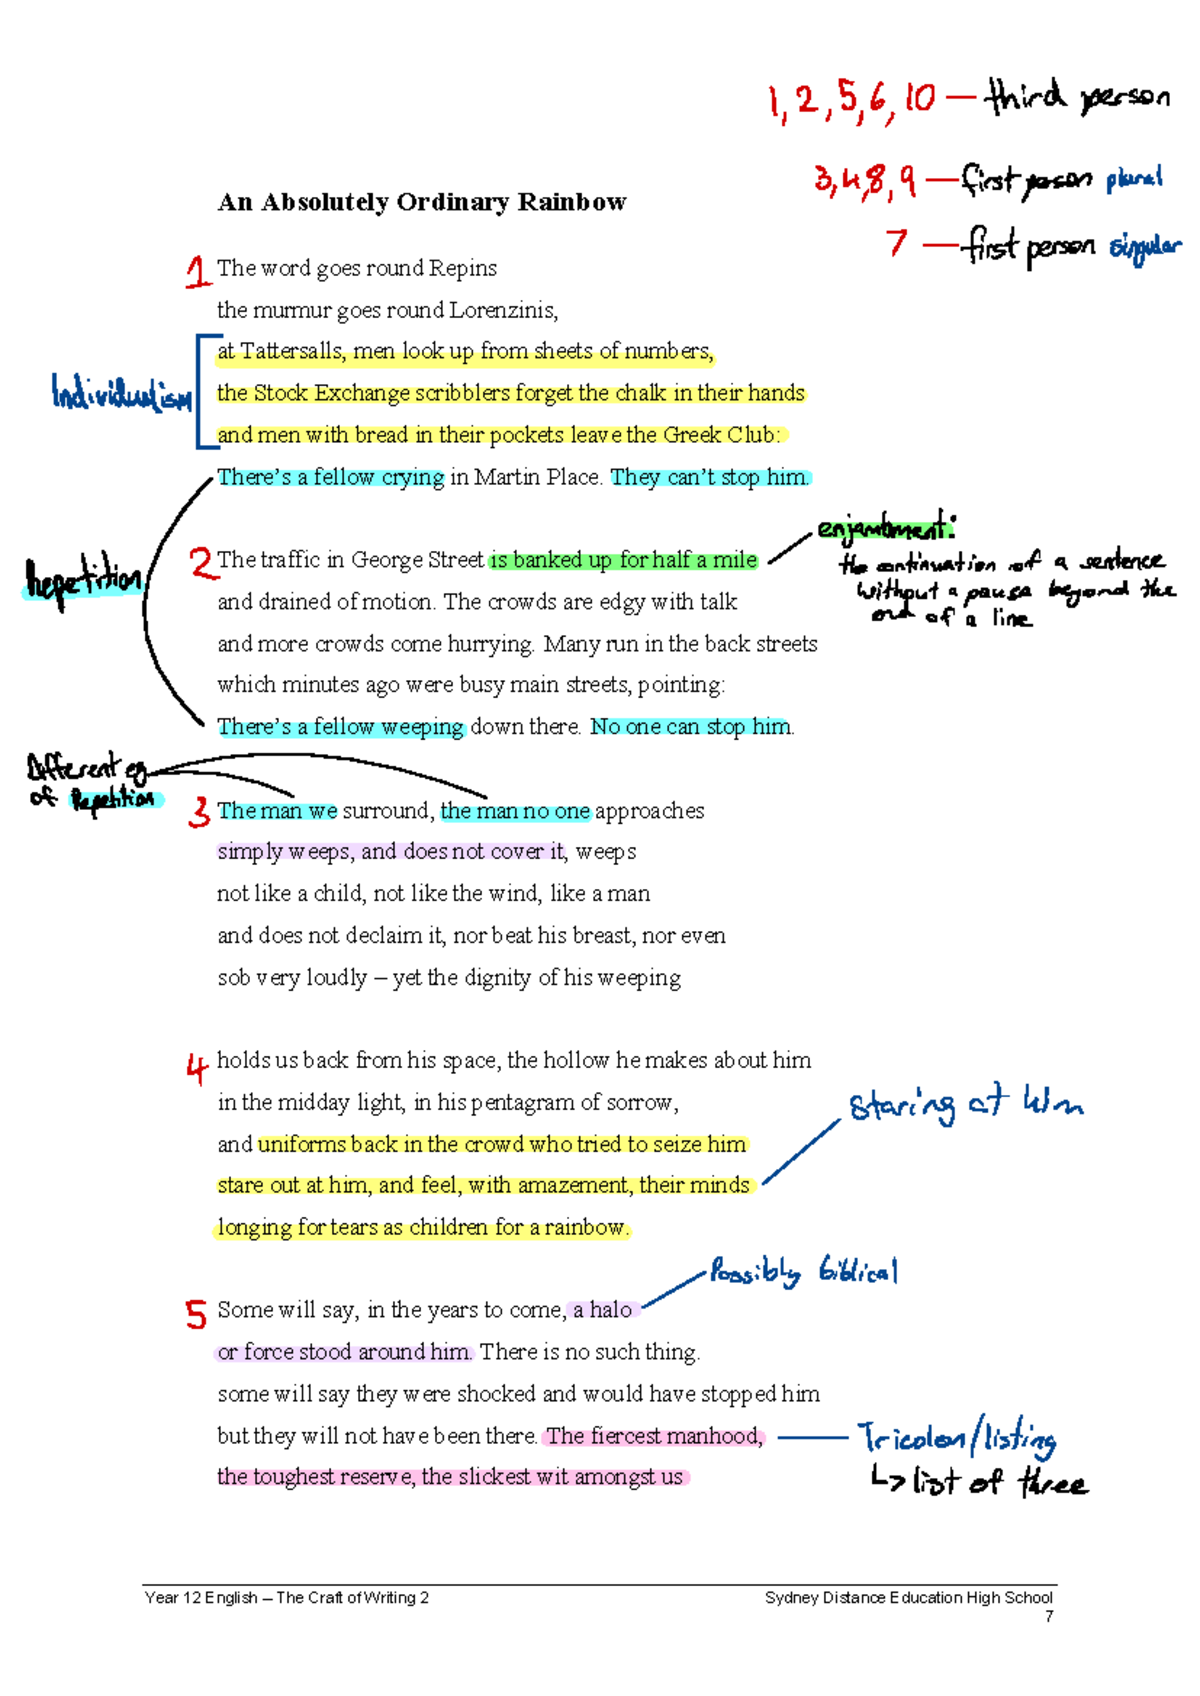 1, 2, 5, 6, 10 — third person
3, 4, 8, 9 — first person plural
An Absolutely Ordinary Rainbow
7 — first person singular
1 The word goes round Repins
the murmur goes round Lorenzinis,
at Tattersalls, men look up from sheets of numbers,
Individualism
the Stock Exchange scribblers forget the chalk in their hands
and men with bread in their pockets leave the Greek Club:
There's a fellow crying in Martin Place. They can't stop him.
enjambment:
the continuation of a sentence
without a pause beyond the
end of a line
Repetition
2 The traffic in George Street is banked up for half a mile
and drained of motion. The crowds are edgy with talk
and more crowds come hurrying. Many run in the back streets
which minutes ago were busy main streets, pointing:
There's a fellow weeping down there. No one can stop him.
Different eg
of Repetition
3 The man we surround, the man no one approaches
simply weeps, and does not cover it, weeps
not like a child, not like the wind, like a man
and does not declaim it, nor beat his breast, nor even
sob very loudly – yet the dignity of his weeping
4 holds us back from his space, the hollow he makes about him
in the midday light, in his pentagram of sorrow,
staring at him
and uniforms back in the crowd who tried to seize him
stare out at him, and feel, with amazement, their minds
longing for tears as children for a rainbow.
Possibly biblical
5 Some will say, in the years to come, a halo
or force stood around him. There is no such thing.
some will say they were shocked and would have stopped him
but they will not have been there. The fiercest manhood,
Tricolon/listing
↳ list of three
the toughest reserve, the slickest wit amongst us
Year 12 English – The Craft of Writing 2
Sydney Distance Education High School
7